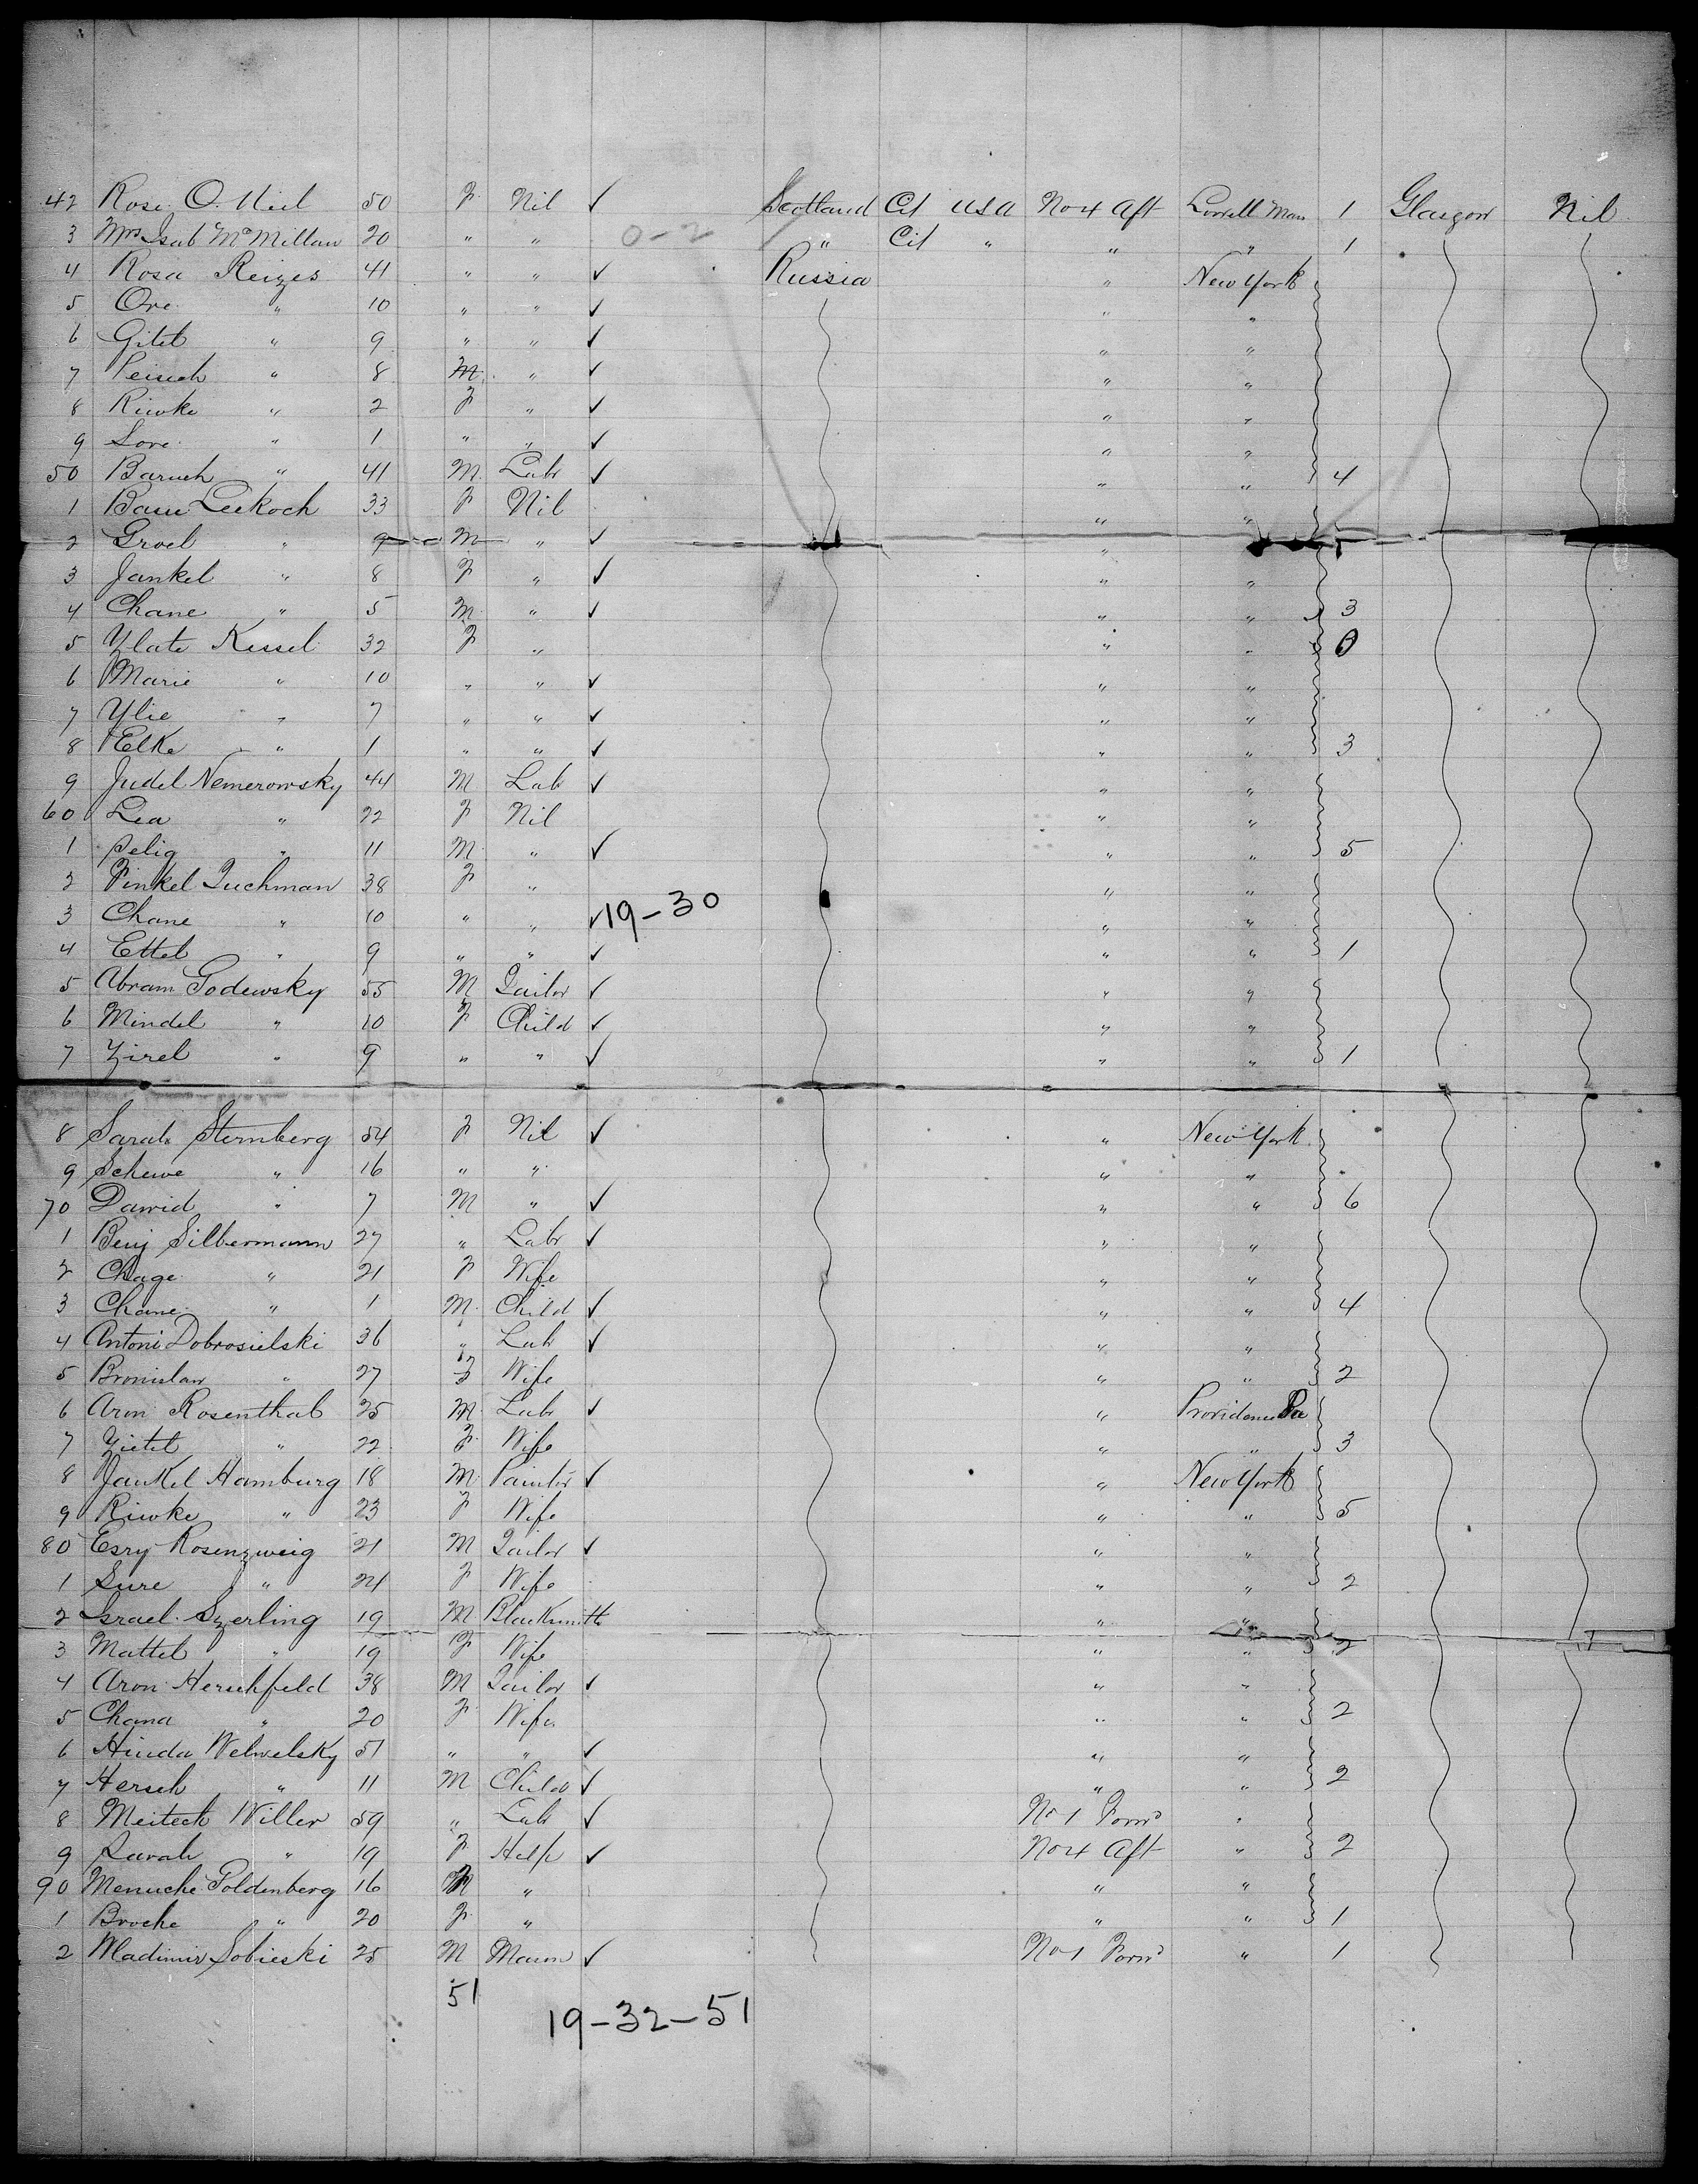 42 Rose O'Neil 50 F Nil ✓ Scotland Cit USA No 4 Aft Lowell Mass 1 Glasgow Nil
3 Mrs Isab McMillan 20 " " 0-2 " Cit " " " 1
4 Rosa Reizes 41 " " ✓ Russia " New York
5 Ore " 10 " " ✓ " "
6 Gitel " 9 " " ✓ " "
7 Peisach " 8 M " ✓ " "
8 Riwke " 2 F " ✓ " "
9 Sore " 1 " " ✓ " "
50 Baruch " 41 M Labr ✓ " " 4
1 Leekoch 33 F Nil " "
2 Groel " 9 M " ✓ " "
3 Jankel " 8 F " ✓ " "
4 Chane " 5 M " ✓ " " 3
5 Zlate Kessel 32 F " " " 0
6 Marie " 10 " " ✓ " "
7 Ylie " 7 " " ✓ " "
8 Elke " 1 " " ✓ " " 3
9 Judel Nemerowsky 44 M Lab ✓ " "
60 Lea " 22 F Nil " "
1 Selig " 11 M " ✓ " " 5
2 Finkel Tuchman 38 F " " "
3 Chane " 10 " " ✓ 19-30 " "
4 Ettel " 9 " " ✓ " " 1
5 Abram Godewsky 55 M Tailor ✓ " "
6 Mindel " 10 F Child ✓ " "
7 Zirel " 9 " " ✓ " " 1
8 Sarah Sternberg 54 F Nil ✓ " New York
9 Schewe " 16 " " " "
70 Dawid " 7 M " ✓ " " 6
1 Benj Silbermann 27 " Labr ✓ " "
2 Chage " 21 F Wife " "
3 Chane " 1 M Child ✓ " " 4
4 Antoni Dobrosielski 36 " Lab ✓ " "
5 Bronislaw " 27 F Wife " " 2
6 Aron Rosenthal 25 M Labr ✓ " Providence Pa
7 Zietel " 22 F Wife " " 3
8 Jankel Hamburg 18 M Painter ✓ " New York
9 Riwke " 23 F Wife " " 5
80 Esry Rosenzweig 21 M Tailor ✓ " "
1 Sure " 24 F Wife " " 2
2 Israel Szerling 19 M Blacksmith " "
3 Mattel " 19 F Wife " " 2
4 Aron Herschfeld 38 M Tailor ✓ " "
5 Chana " 20 F Wife " " 2
6 Hinda Welwelsky 51 " " ✓ " "
7 Hersch " 11 M Child ✓ " " 2
8 Meiteck Willer 59 " Lab ✓ No 1 Forwd "
9 Sarah " 19 F Help ✓ No 4 Aft " 2
90 Menuche Goldenberg 16 " " "
1 Broche " 20 F " " " 1
2 Wladimir Sobieski 25 M Mason ✓ No 1 Forwd " 1
51
19-32-51